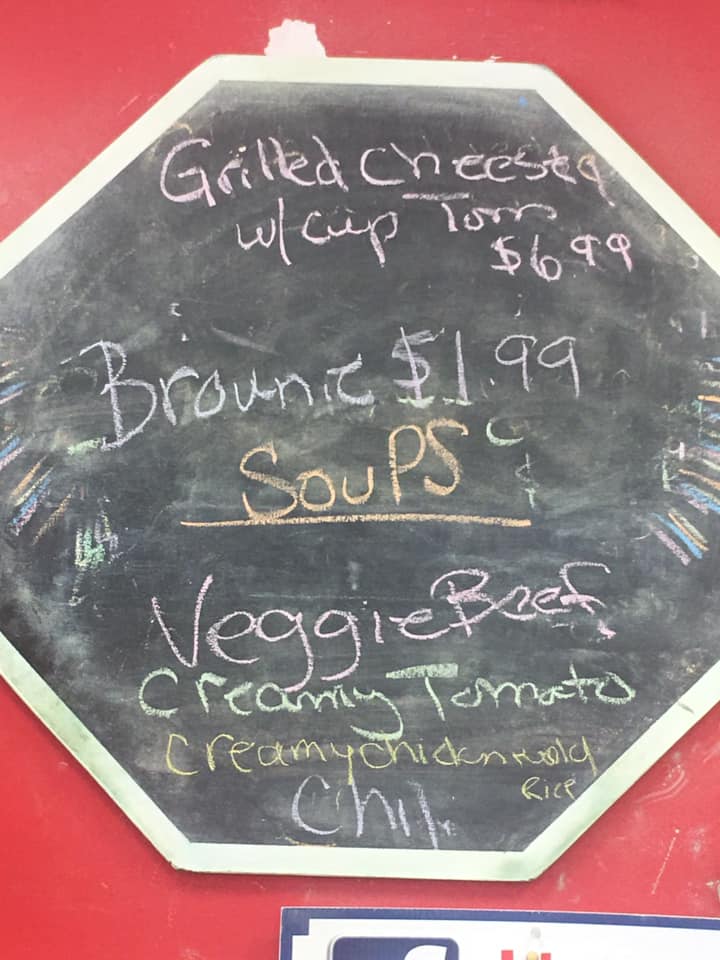 Grilled Cheese
w/ cup Tom
$6.99
Brownie $1.99
SouPS
Veggie Beef
Creamy Tomato
Creamy chicken wild
Rice
Chili
f